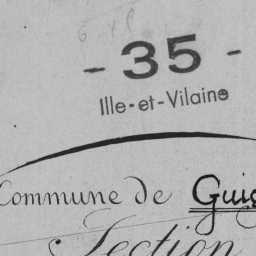 - 35 -
Ille-et-Vilaine
Commune de
Section